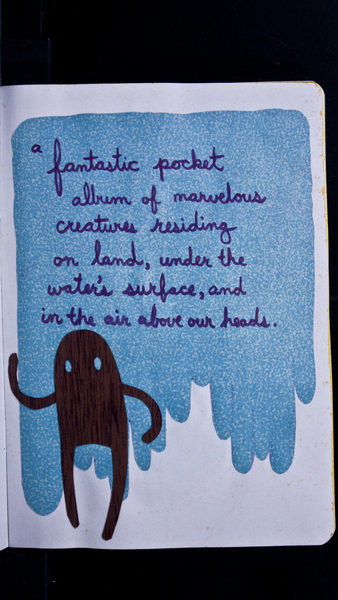 a fantastic pocket
album of marvelous
creatures residing
on land, under the
water's surface, and
in the air above our heads.